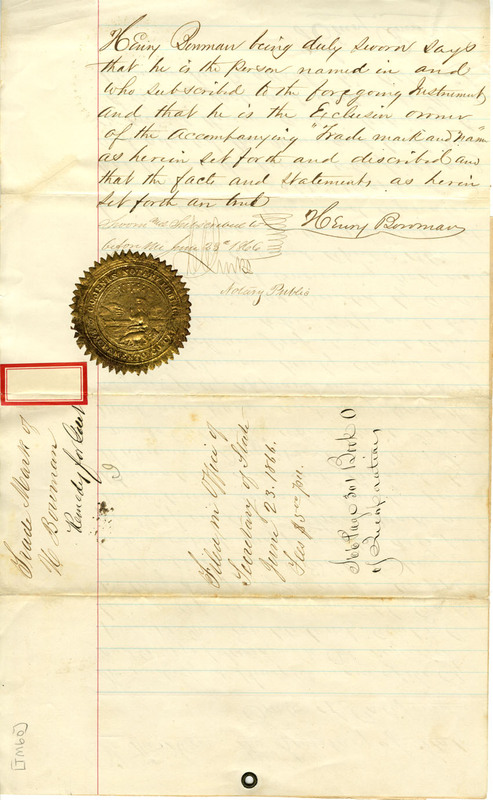 Henry Bowman being duly sworn says
that he is the person named in and
who subscribed to the foregoing Instrument,
and that he is the Exclusiv owner
of the accompanying "Trade mark and Name"
as herein set forth and described and
that the facts and statements as herein
set forth an true
Sworn & Subscribed to
before me June 23rd 1866
Henry Bowman
Notary Public
Trade Mark of
H Bowman
Remedy for
Filed in Office of
Secretary of State
June 23. 1866.
Fees $5.00 pm.
See Page 301 Book O
[TM60]